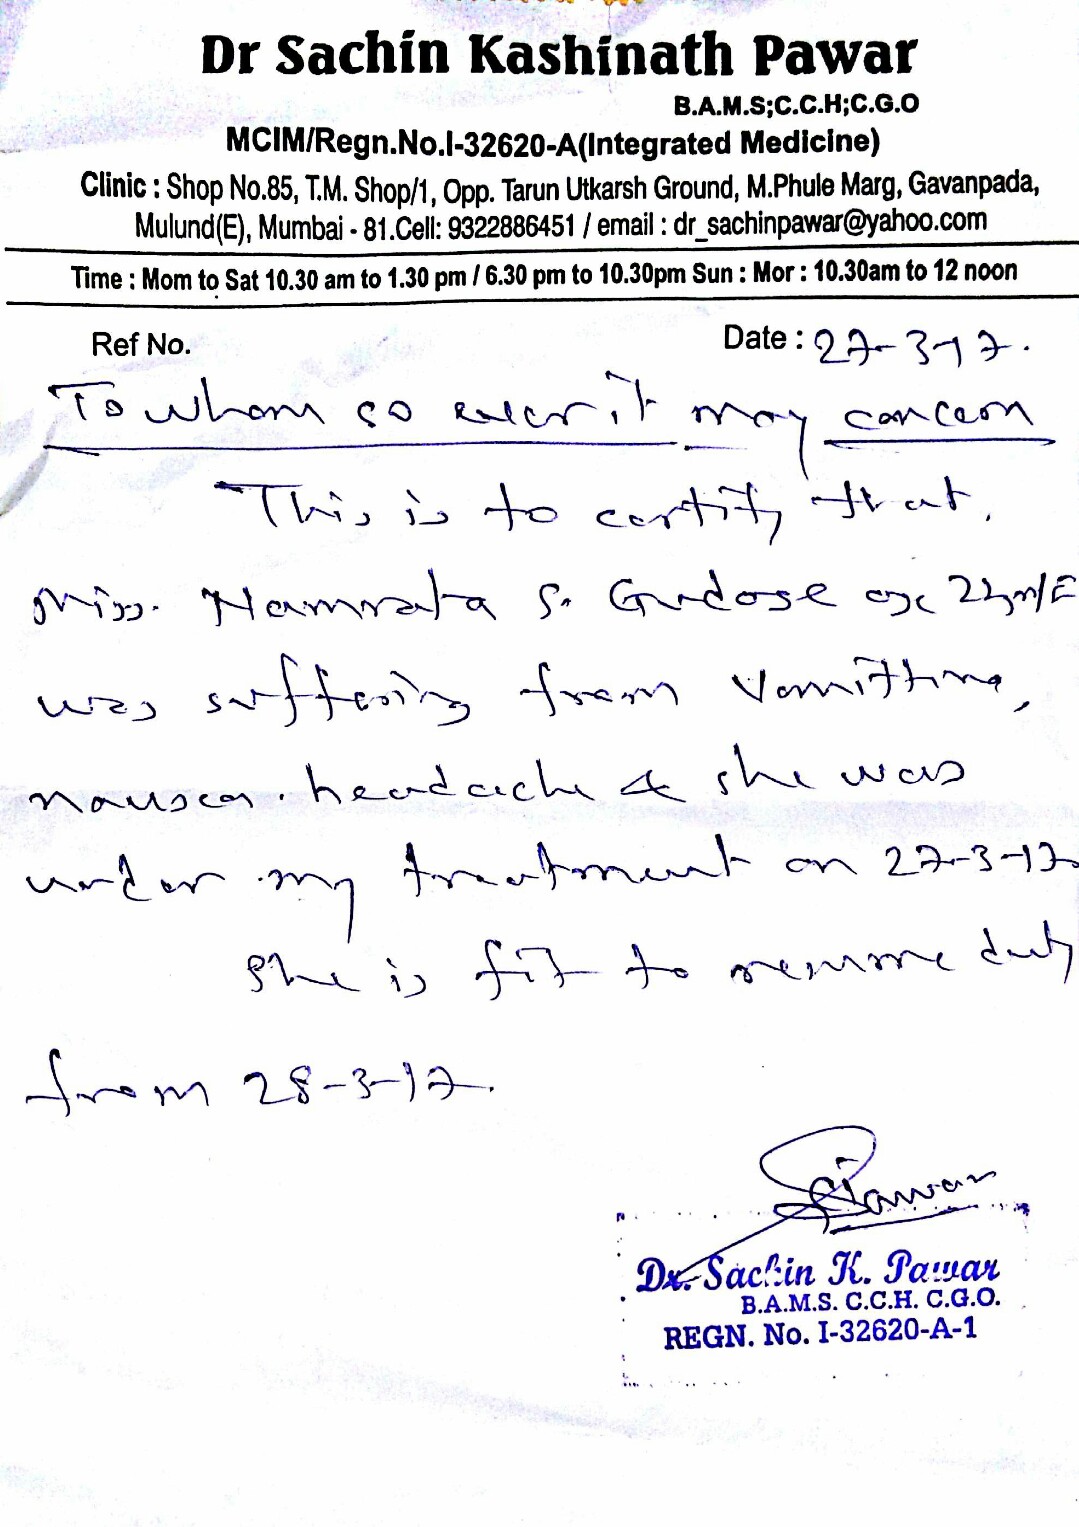 Dr Sachin Kashinath Pawar
B.A.M.S;C.C.H;C.G.O
MCIM/Regn.No.I-32620-A(Integrated Medicine)
Clinic : Shop No.85, T.M. Shop/1, Opp. Tarun Utkarsh Ground, M.Phule Marg, Gavanpada,
Mulund(E), Mumbai - 81.Cell: 9322886451 / email : dr_sachinpawar@yahoo.com
Time : Mom to Sat 10.30 am to 1.30 pm / 6.30 pm to 10.30pm Sun : Mor : 10.30am to 12 noon
Ref No. Date : 27-3-17.
To whom so ever it may concern
This is to certify that,
Miss. Namrata S. Gudose age
was suffering from Vomitting,
nausea. headache & she was
under my treatment on 27-3-17
She is fit to resume duty
from 28-3-17.
SPawar
Dr. Sachin K. Pawar
B.A.M.S. C.C.H. C.G.O.
REGN. No. I-32620-A-1